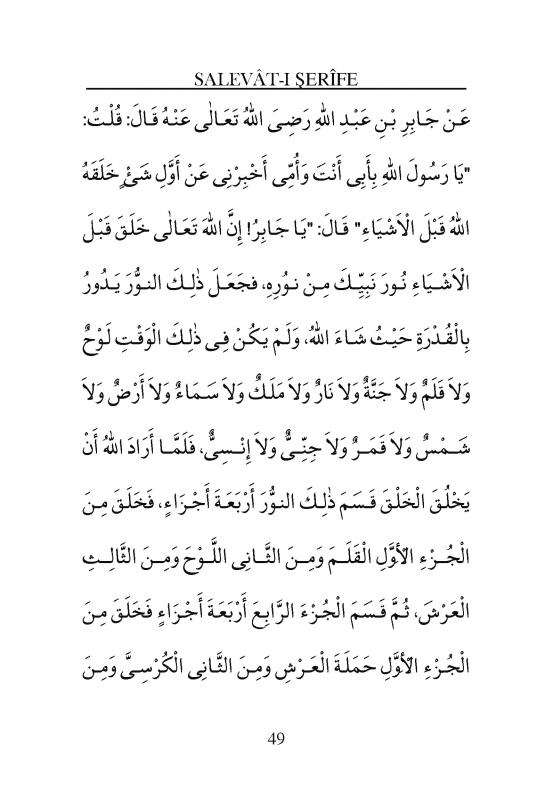 SALEVÂT-I ŞERÎFE
عَنْ جَابِرِ بْنِ عَبْدِ اللهِ رَضِىَ اللهُ تَعَالٰى عَنْهُ قَالَ: قُلْتُ:
"يَا رَسُولَ اللهِ بِأَبِى أَنْتَ وَأُمِّى أَخْبِرْنِى عَنْ أَوَّلِ شَىْءٍ خَلَقَهُ
اللهُ قَبْلَ الْاَشْيَاءِ" قَالَ: "يَا جَابِرُ! إِنَّ اللهَ تَعَالٰى خَلَقَ قَبْلَ
الْاَشْيَاءِ نُورَ نَبِيِّكَ مِنْ نُورِهِ، فجَعَلَ ذٰلِكَ النوُّرَ يَدُورُ
بِالْقُدْرَةِ حَيْثُ شَاءَ اللهُ، وَلَمْ يَكُنْ فِى ذٰلِكَ الْوَقْتِ لَوْحٌ
وَلاَ قَلَمٌ وَلاَ جَنَّةٌ وَلاَ نَارٌ وَلاَ مَلَكٌ وَلاَ سَمَاءٌ وَلاَ أَرْضٌ وَلاَ
شَمْسٌ وَلاَ قَمَرٌ وَلاَ جِنِّىٌّ وَلاَ إِنْسِىٌّ، فَلَمَّا أَرَادَ اللهُ أَنْ
يَخْلُقَ الْخَلْقَ قَسَمَ ذٰلِكَ النوُّرَ أَرْبَعَةَ أَجْزَاءٍ، فَخَلَقَ مِنَ
الْجُزْءِ الْأَوَّلِ الْقَلَمَ وَمِنَ الثَّانِى اللَّوْحَ وَمِنَ الثَّالِثِ
الْعَرْشَ، ثُمَّ قَسَمَ الْجُزْءَ الرَّابِعَ أَرْبَعَةَ أَجْزَاءٍ فَخَلَقَ مِنَ
الْجُزْءِ الْأَوَّلِ حَمَلَةَ الْعَرْشِ وَمِنَ الثَّانِى الْكُرْسِىَّ وَمِنَ
49